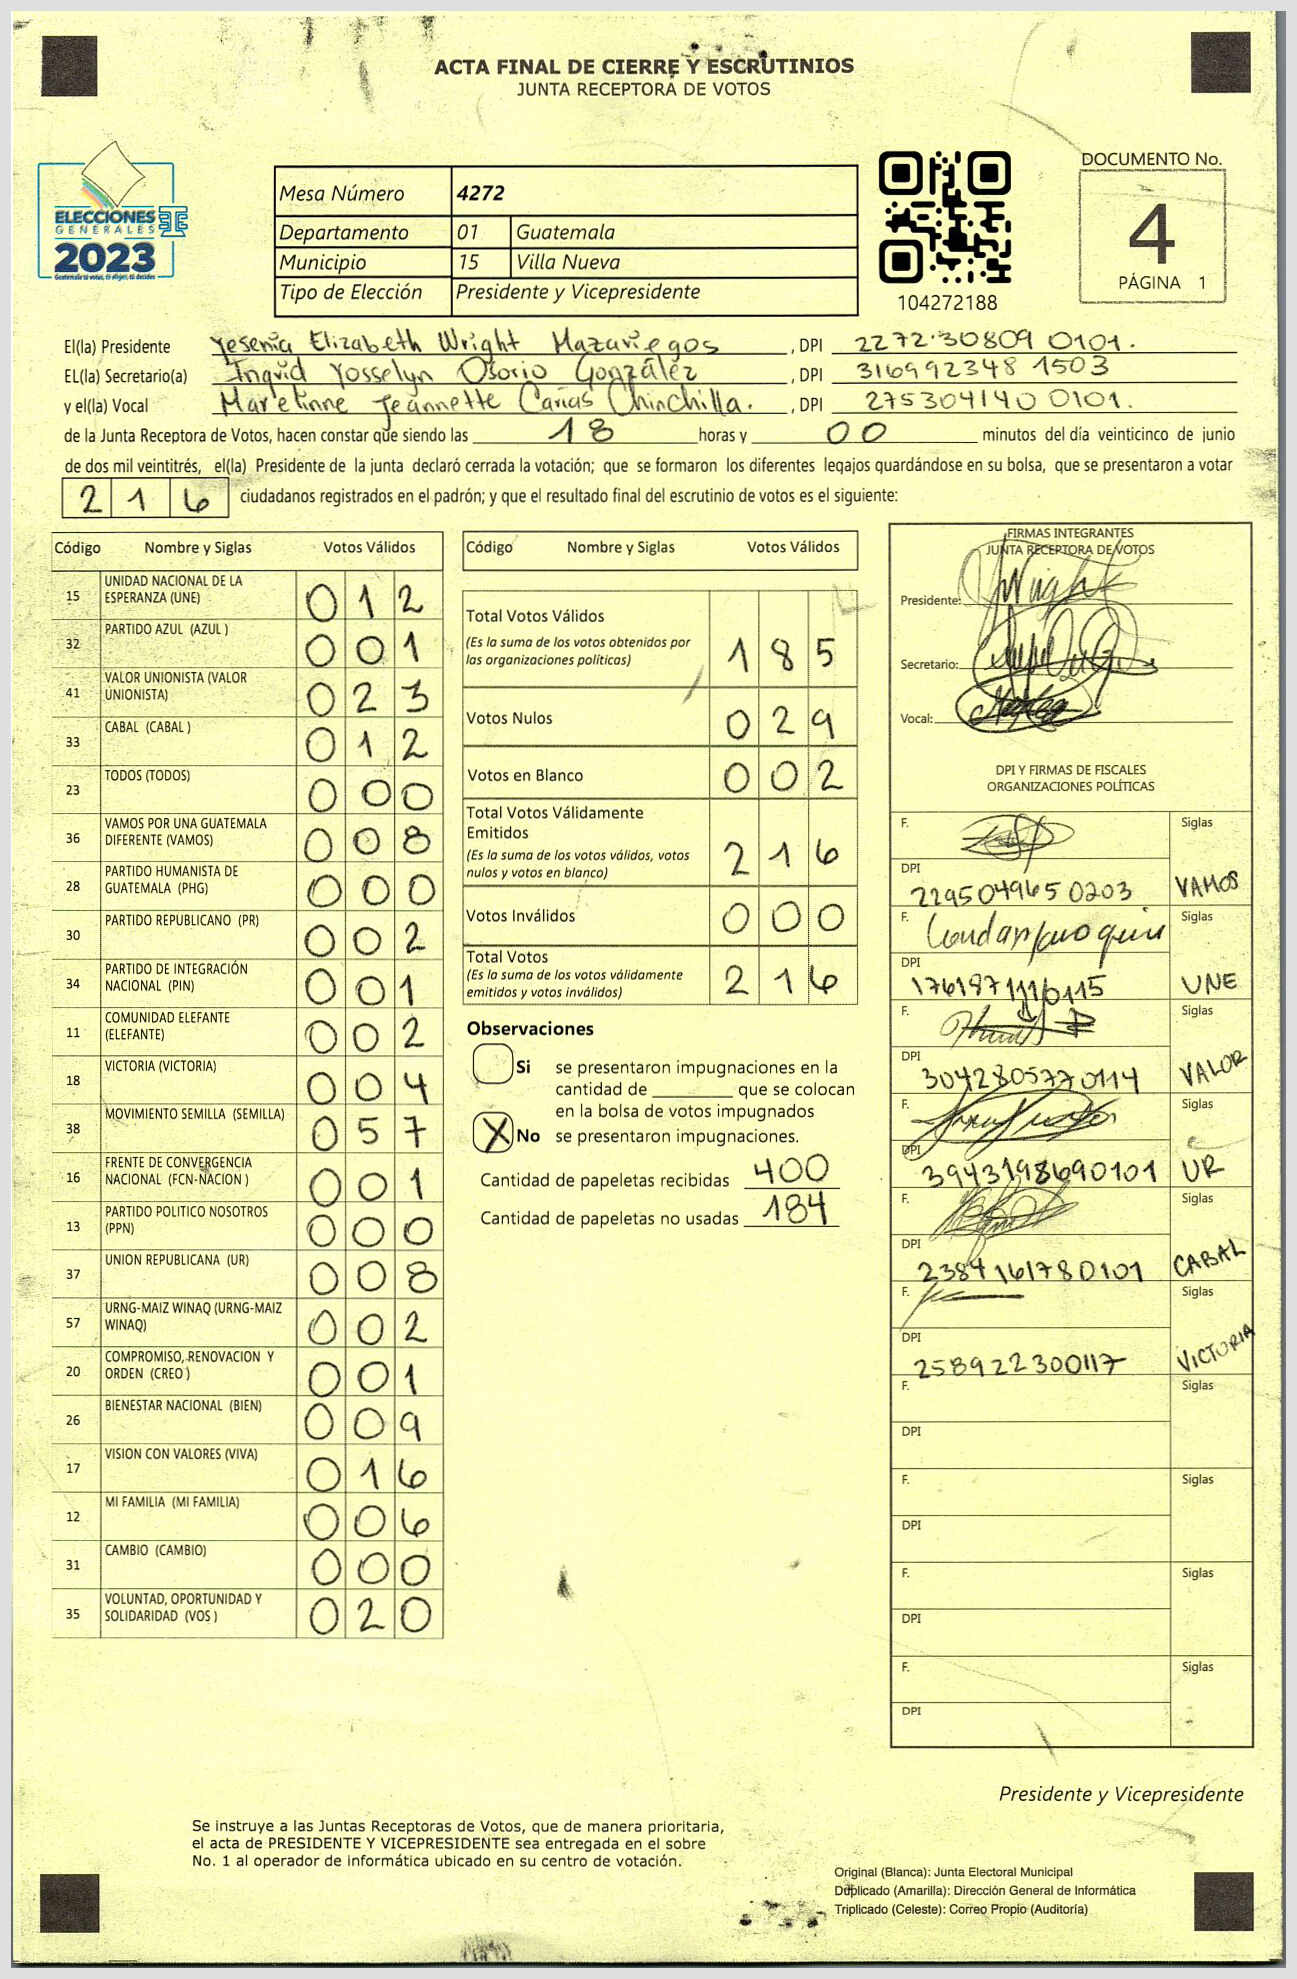 ACTA FINAL DE CIERRE Y ESCRUTINIOS
JUNTA RECEPTORA DE VOTOS
ELECCIONES
GENERALES
2023
Mesa Número 4272
Departamento 01 Guatemala
Municipio 15 Villa Nueva
Tipo de Elección Presidente y Vicepresidente
104272188
DOCUMENTO No.
4
PÁGINA 1
El(la) Presidente Yesenia Elizabeth Wright Mazariegos, DPI 2272·30809 0101.
EL(la) Secretario(a) Ingrid Yosselyn Osorio González, DPI 316992348 1503
y el(la) Vocal Marelinne Jeannette Carías Chinchilla., DPI 275304140 0101.
de la Junta Receptora de Votos, hacen constar que siendo las 18 horas y 00 minutos del día veinticinco de junio
de dos mil veintitrés, el(la) Presidente de la junta declaró cerrada la votación; que se formaron los diferentes legajos quardándose en su bolsa, que se presentaron a votar
216 ciudadanos registrados en el padrón; y que el resultado final del escrutinio de votos es el siguiente:
Código Nombre y Siglas Votos Válidos
15 UNIDAD NACIONAL DE LA ESPERANZA (UNE) 012
32 PARTIDO AZUL (AZUL ) 001
41 VALOR UNIONISTA (VALOR UNIONISTA) 023
33 CABAL (CABAL ) 012
23 TODOS (TODOS) 000
36 VAMOS POR UNA GUATEMALA DIFERENTE (VAMOS) 008
28 PARTIDO HUMANISTA DE GUATEMALA (PHG) 000
30 PARTIDO REPUBLICANO (PR) 002
34 PARTIDO DE INTEGRACIÓN NACIONAL (PIN) 001
11 COMUNIDAD ELEFANTE (ELEFANTE) 002
18 VICTORIA (VICTORIA) 004
38 MOVIMIENTO SEMILLA (SEMILLA) 057
16 FRENTE DE CONVERGENCIA NACIONAL (FCN-NACION ) 001
13 PARTIDO POLITICO NOSOTROS (PPN) 000
37 UNION REPUBLICANA (UR) 008
57 URNG-MAIZ WINAQ (URNG-MAIZ WINAQ) 002
20 COMPROMISO, RENOVACION Y ORDEN (CREO ) 001
26 BIENESTAR NACIONAL (BIEN) 009
17 VISION CON VALORES (VIVA) 016
12 MI FAMILIA (MI FAMILIA) 006
31 CAMBIO (CAMBIO) 000
35 VOLUNTAD, OPORTUNIDAD Y SOLIDARIDAD (VOS ) 020
Código Nombre y Siglas Votos Válidos
Total Votos Válidos 185
(Es la suma de los votos obtenidos por
las organizaciones políticas)
Votos Nulos 029
Votos en Blanco 002
Total Votos Válidamente
Emitidos 216
(Es la suma de los votos válidos, votos
nulos y votos en blanco)
Votos Inválidos 000
Total Votos 216
(Es la suma de los votos válidamente
emitidos y votos inválidos)
Observaciones
Si se presentaron impugnaciones en la
cantidad de ________ que se colocan
en la bolsa de votos impugnados
X No se presentaron impugnaciones.
Cantidad de papeletas recibidas 400
Cantidad de papeletas no usadas 184
FIRMAS INTEGRANTES
JUNTA RECEPTORA DE VOTOS
Presidente: Wright
Secretario:
Vocal:
DPI Y FIRMAS DE FISCALES
ORGANIZACIONES POLÍTICAS
F. Siglas
DPI 2295049650203 VAMOS
F. Siglas
DPI UNE
F. Siglas
DPI 3042805770114 VALOR
F. Siglas
DPI 3943198690101 UR
F. Siglas
DPI 2384161780101 CABAL
F. Siglas
DPI 258922300117 VICTORIA
F. Siglas
DPI
F. Siglas
DPI
F. Siglas
DPI
F. Siglas
DPI
Presidente y Vicepresidente
Se instruye a las Juntas Receptoras de Votos, que de manera prioritaria,
el acta de PRESIDENTE Y VICEPRESIDENTE sea entregada en el sobre
No. 1 al operador de informática ubicado en su centro de votación.
Original (Blanca): Junta Electoral Municipal
Duplicado (Amarilla): Dirección General de Informática
Triplicado (Celeste): Correo Propio (Auditoría)